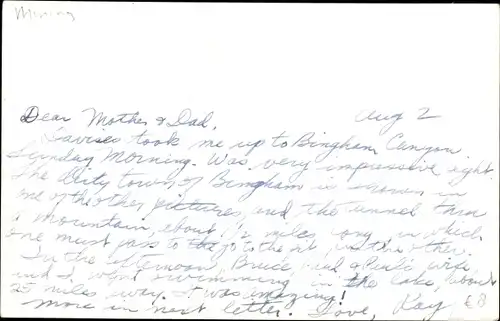 Mining
Aug 2
Dear Mother & Dad,
Davises took me up to Bingham Canyon
Sunday Morning. Was very impressive sight.
The dity town of Bingham is shown in
one of the other pictures, and the tunnel thru
a mountain, about 1½ miles long in which
one must pass to go to the pit, in the other.
In the afternoon, Bruce, and wife
and I went swimming in the lake, about
25 miles away. It was amazing!
more in next letter. Love, Ray
£8